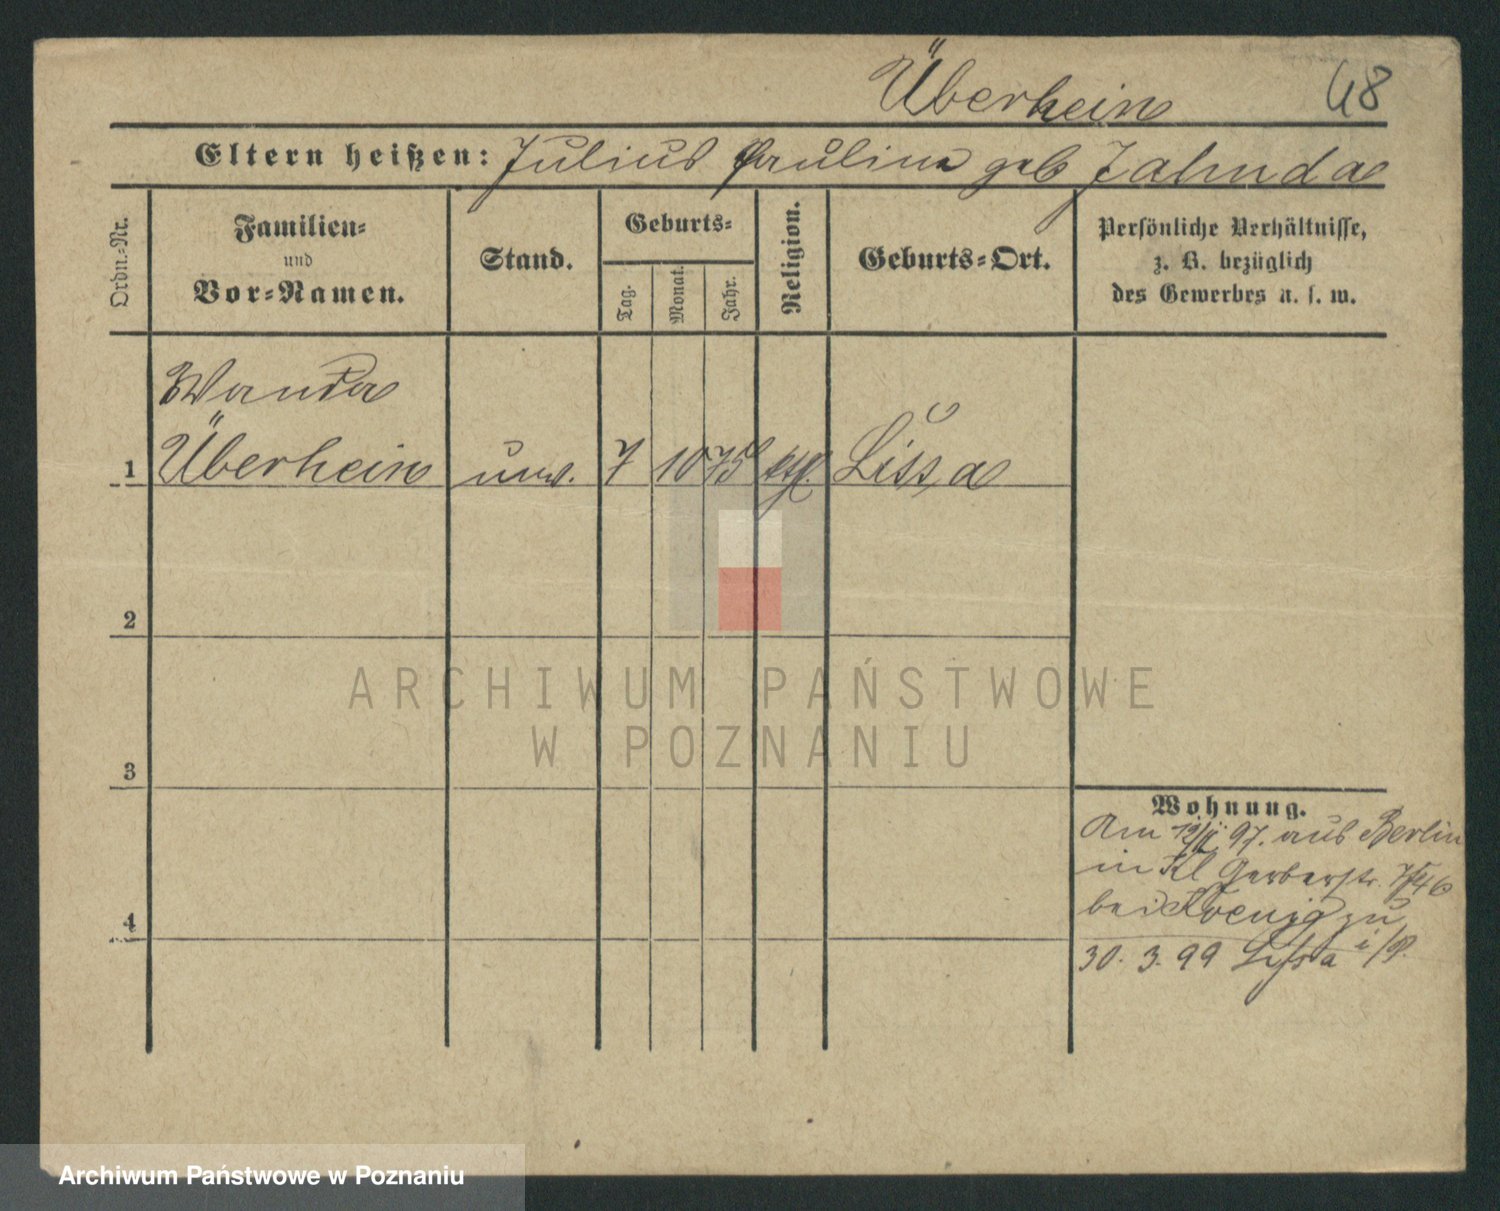 Überhein 48
Eltern heißen: Julius Paulina geb
Ordn.-Nr.
Familien-
und
Vor-Namen.
Stand.
Geburts-
Tag.
Monat.
Jahr.
Religion.
Geburts-Ort.
Persönliche Verhältnisse,
z. B. bezüglich
des Gewerbes u. s. w.
Wanda
1 Überhein unv. 7 10 75 Lissa
2
3
4
Wohnung.
Am 97. aus Berlin
in Kl Gerberstr.
bei Koenig zu
30. 3. 99 Lissa i/P.
ARCHIWUM PAŃSTWOWE
W POZNANIU
Archiwum Państwowe w Poznaniu